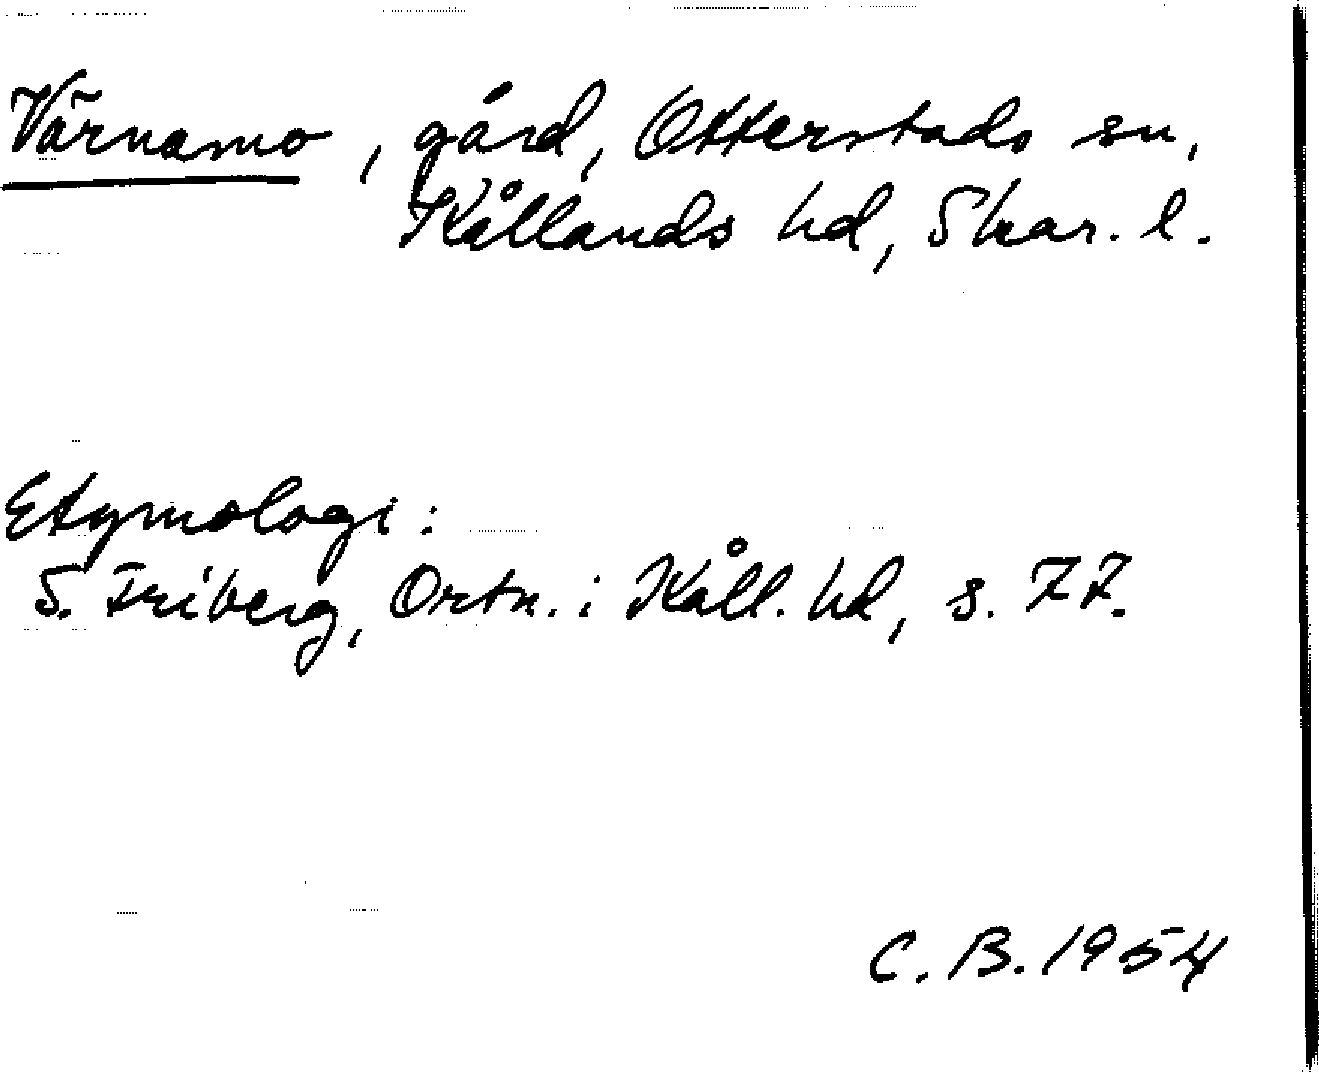 Värnamo, gård, Otterstads sn,
Kållands hd, Skar. l.
Etymologi:
S. Friberg, Ortn. i Kåll. hd, s. 77.
C. B. 1954